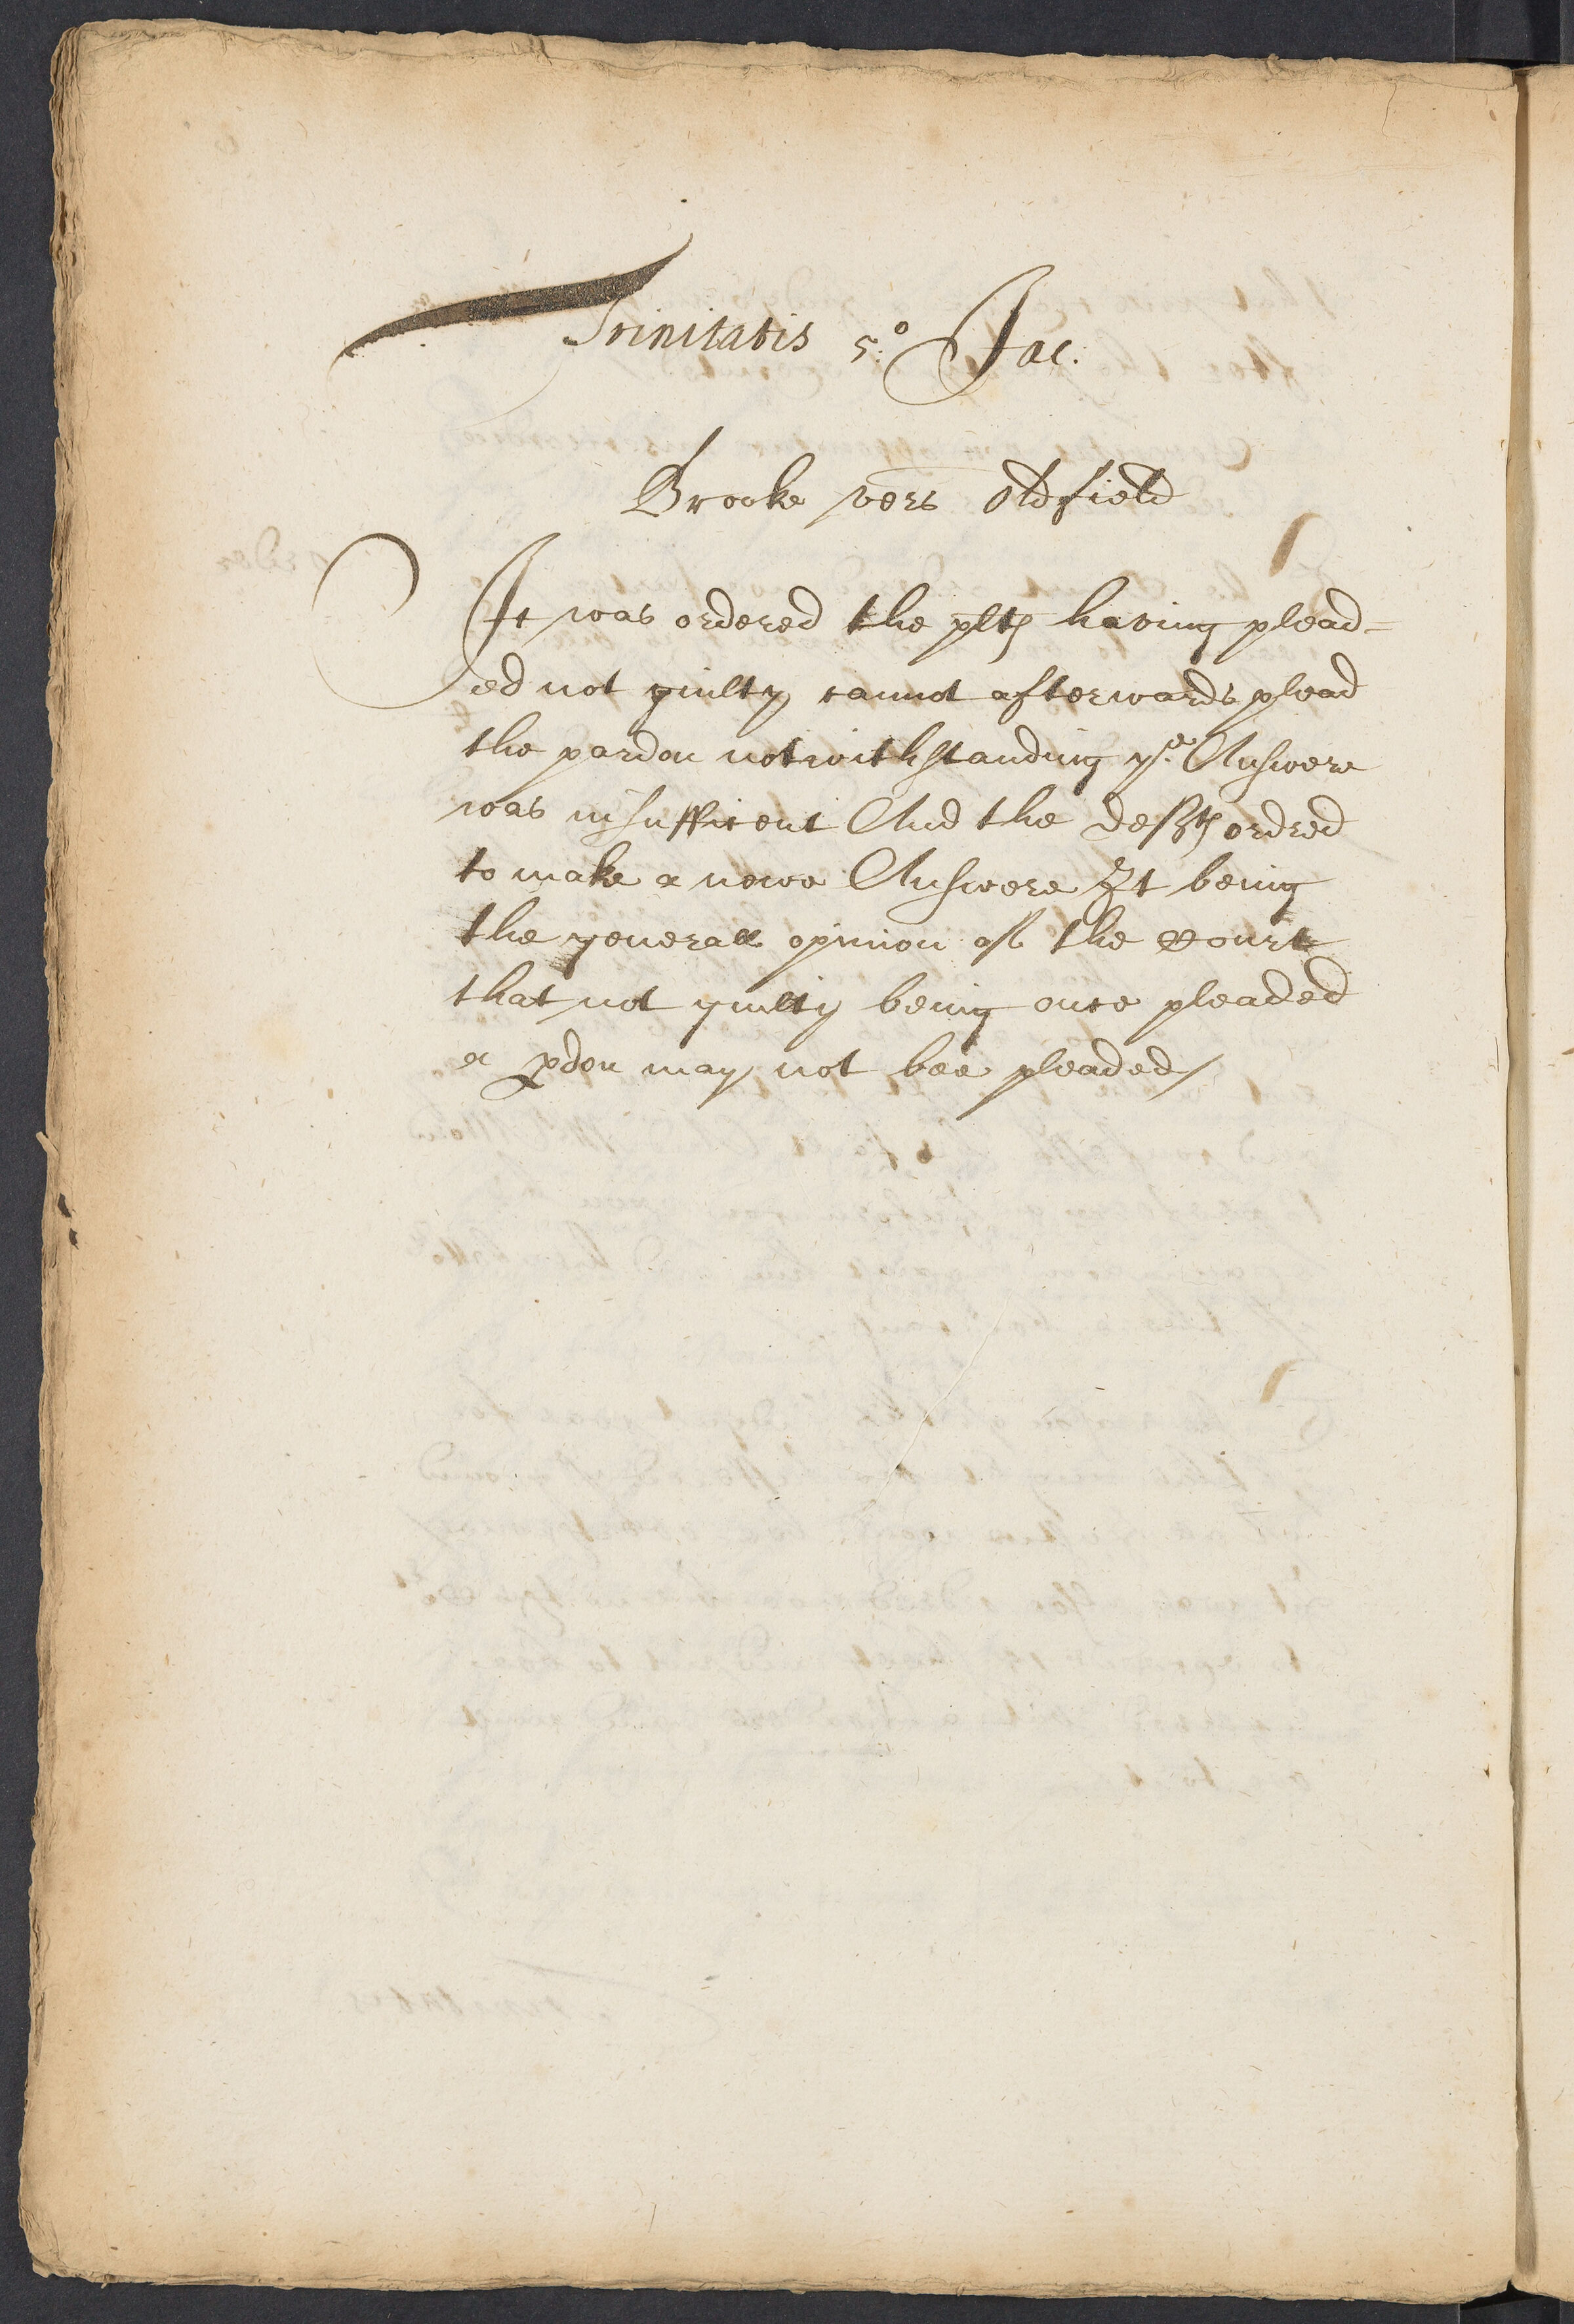 Trinitatis 5:º Jac:
Brooke vers Oldfield
It was ordered the plts having plead=
ed not guilty cannot afterwards plead
the pardon notwithstanding yᵉ: Answere
was insufficent And the defts ordred
to make a newe Answere It being
the generall opinion of the Court
that not guilty being once pleaded
a pdon may not bee pleaded/